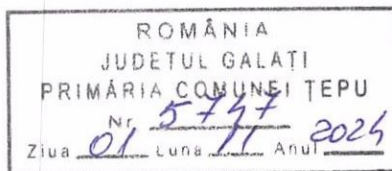 ROMÂNIA
JUDEȚUL GALAȚI
PRIMĂRIA COMUNEI ȚEPU
Nr. 5747
Ziua 01 Luna 11 Anul 2024